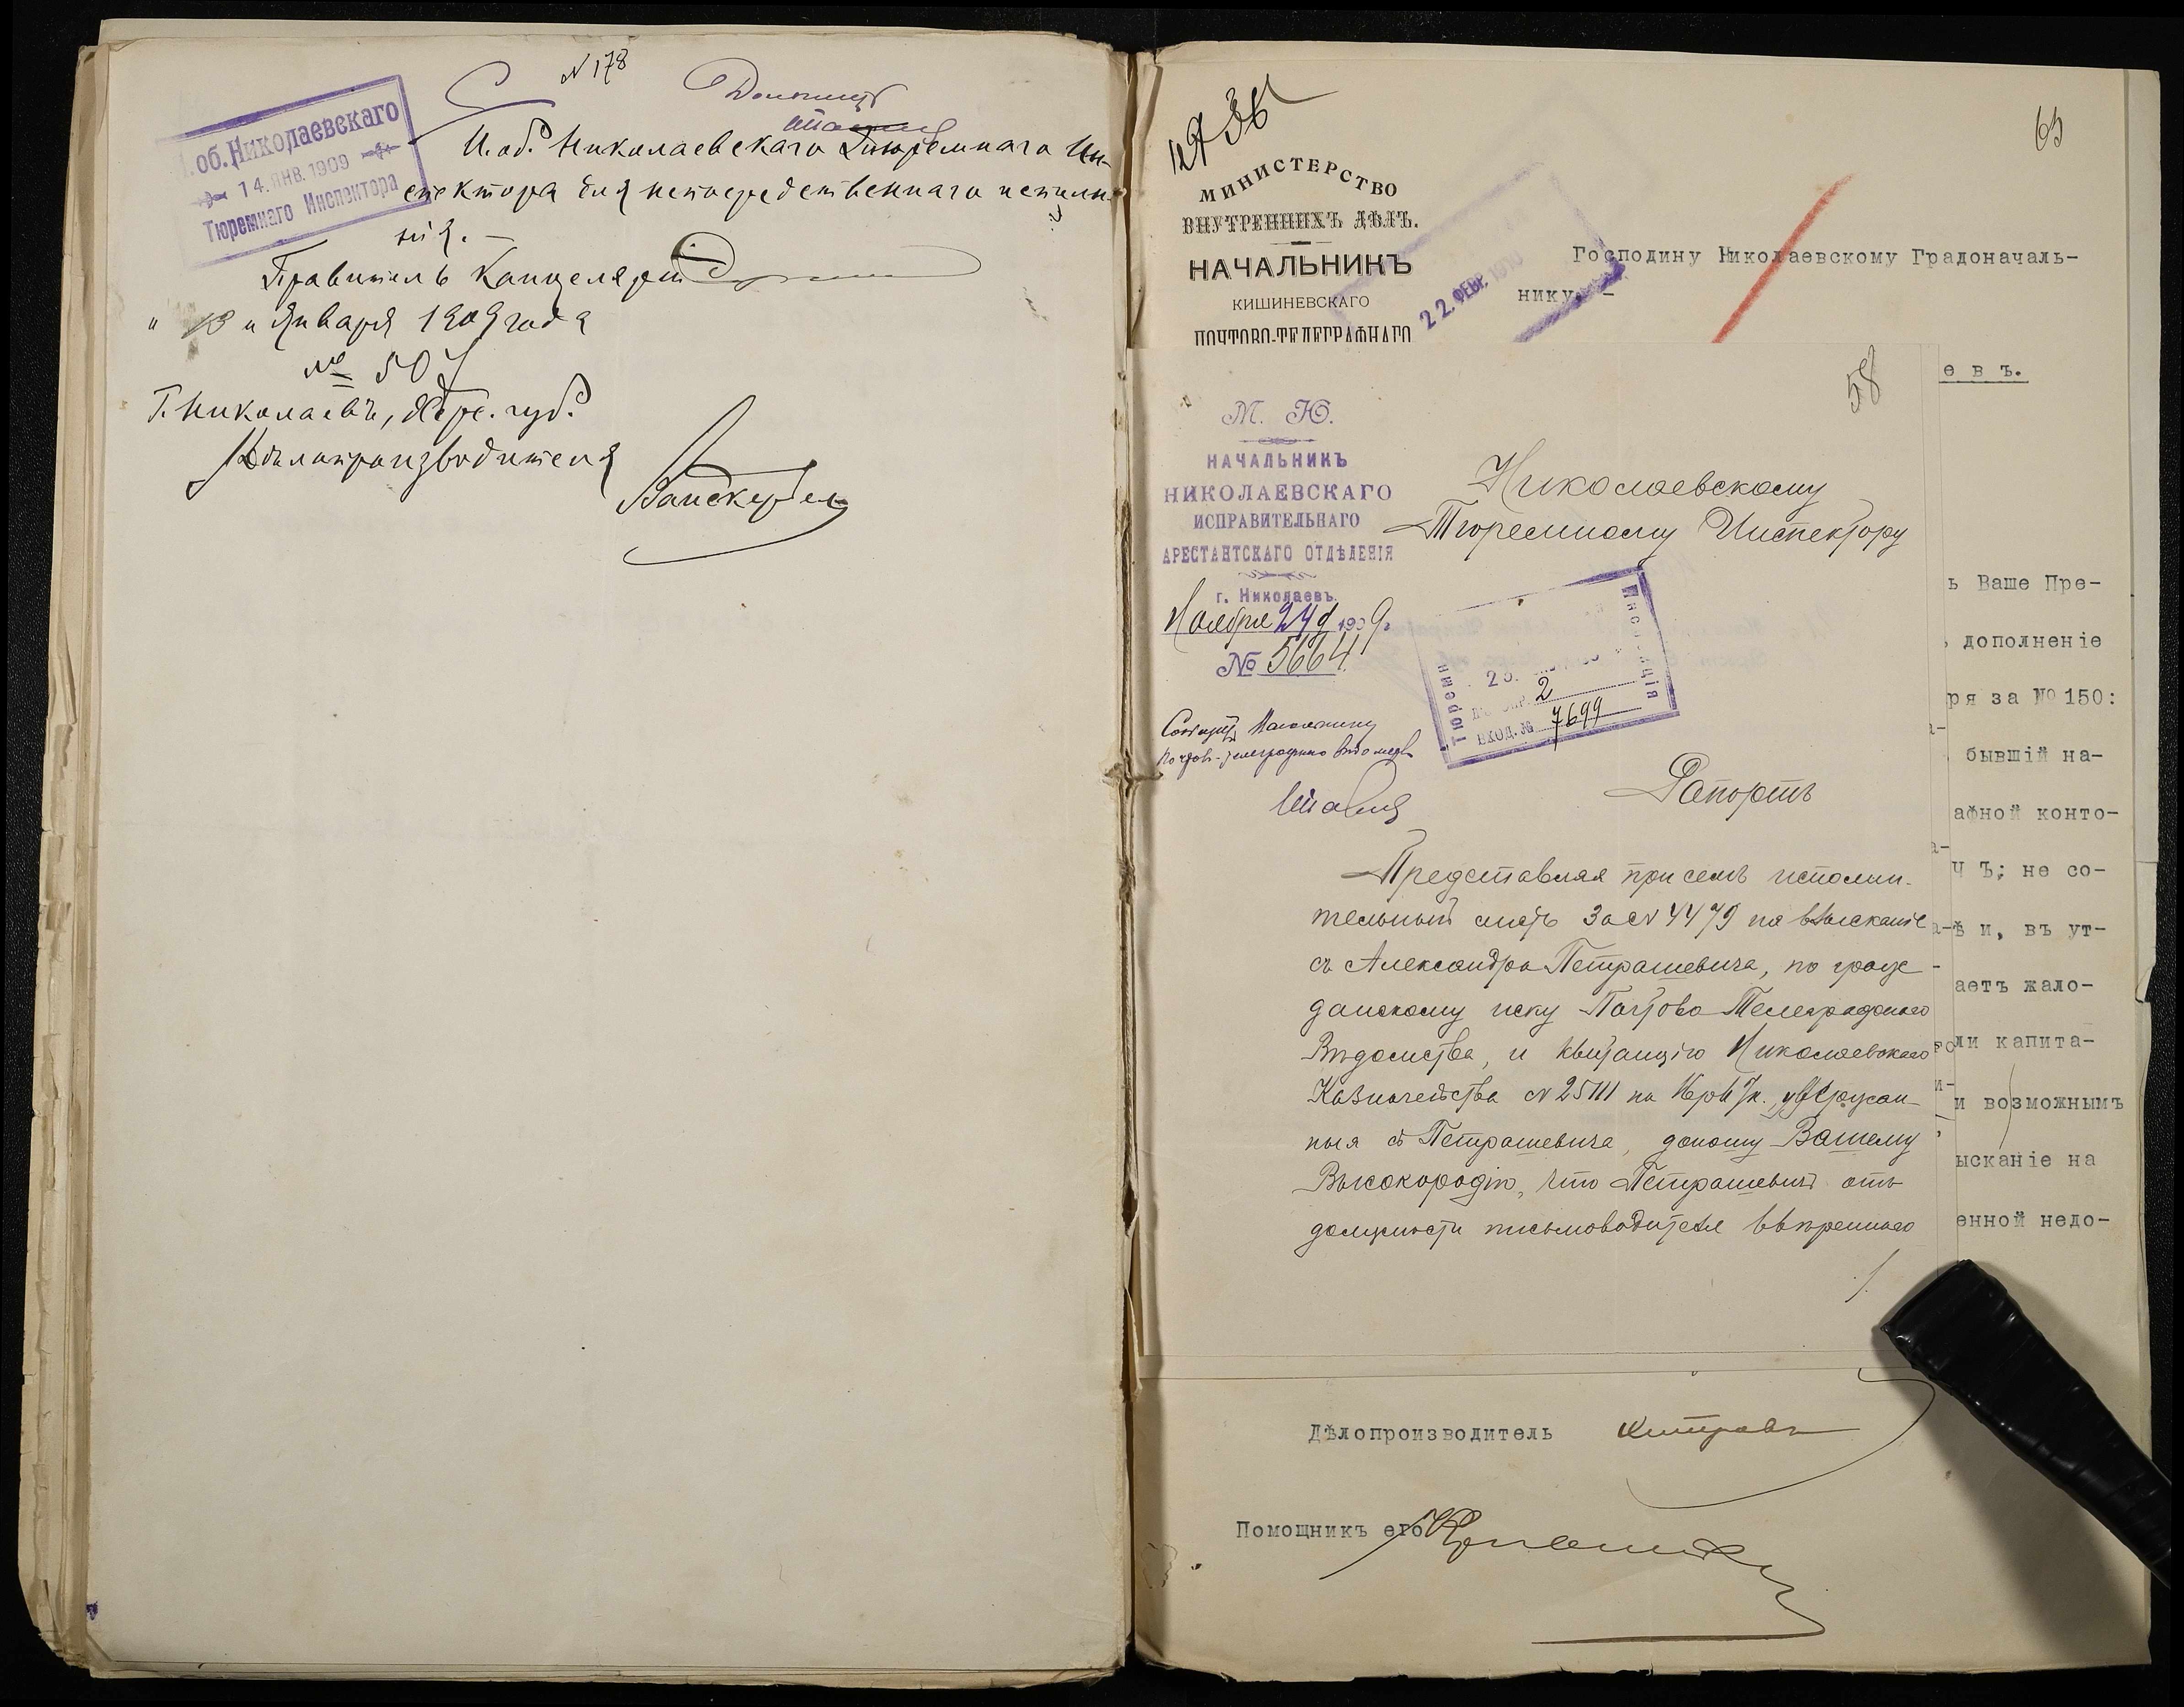 N 178
Доложить
И.об. Николаевскаго
14. ЯНВ. 1909
Тюремнаго Инспектора
И. об. Николаевскаго Тюремнаго Ин-
спектора для непосредственнаго исполне-
нія. —
Правитель Канцеляріи
" 13 " Января 1909 года
№ 507
Г. Николаевъ, Херс. губ.
Дѣлопроизводителя
МИНИСТЕРСТВО
ВНУТРЕННИХЪ ДѢЛЪ.
НАЧАЛЬНИКЪ
КИШИНЕВСКАГО
ПОЧТОВО-ТЕЛЕГРАФНАГО
22. ФЕВР. 1910
65
Господину Николаевскому Градоначаль-
нику. —
евъ.
58
М. Ю.
НАЧАЛЬНИКЪ
НИКОЛАЕВСКАГО
ИСПРАВИТЕЛЬНАГО
АРЕСТАНТСКАГО ОТДѢЛЕНІЯ
г. Николаевъ.
Ноября 24 д 1909 г.
№ 5664
Николаевскому
Тюремному Инспектору
Тюремн Инспекція
2
ВХОД. № 7699
Сообщить Начальнику
почтов-телеграфнаго
Рапортъ
Представляя при семъ исполни-
тельный листъ за N 4479 на взысканіе
съ Александра Петрашевича, по граж-
данскому иску Почтово Телеграфнаго
Вѣдомства, и квитанцію Николаевскаго
Казначейства N 25111 на 16 р. удержан-
ныя съ Петрашевича, доношу Вашему
Высокородію, что Петрашевичъ отъ
должности письмоводителя ввѣреннаго
ъ Ваше Пре-
дополненіе
ря за № 150:
бывшій на-
афной конто-
Ч Ъ; не со-
ѣ и, въ ут-
аетъ жало-
ли капита-
и возможнымъ
ысканіе на
енной недо-
Дѣлопроизводитель
Помощникъ его